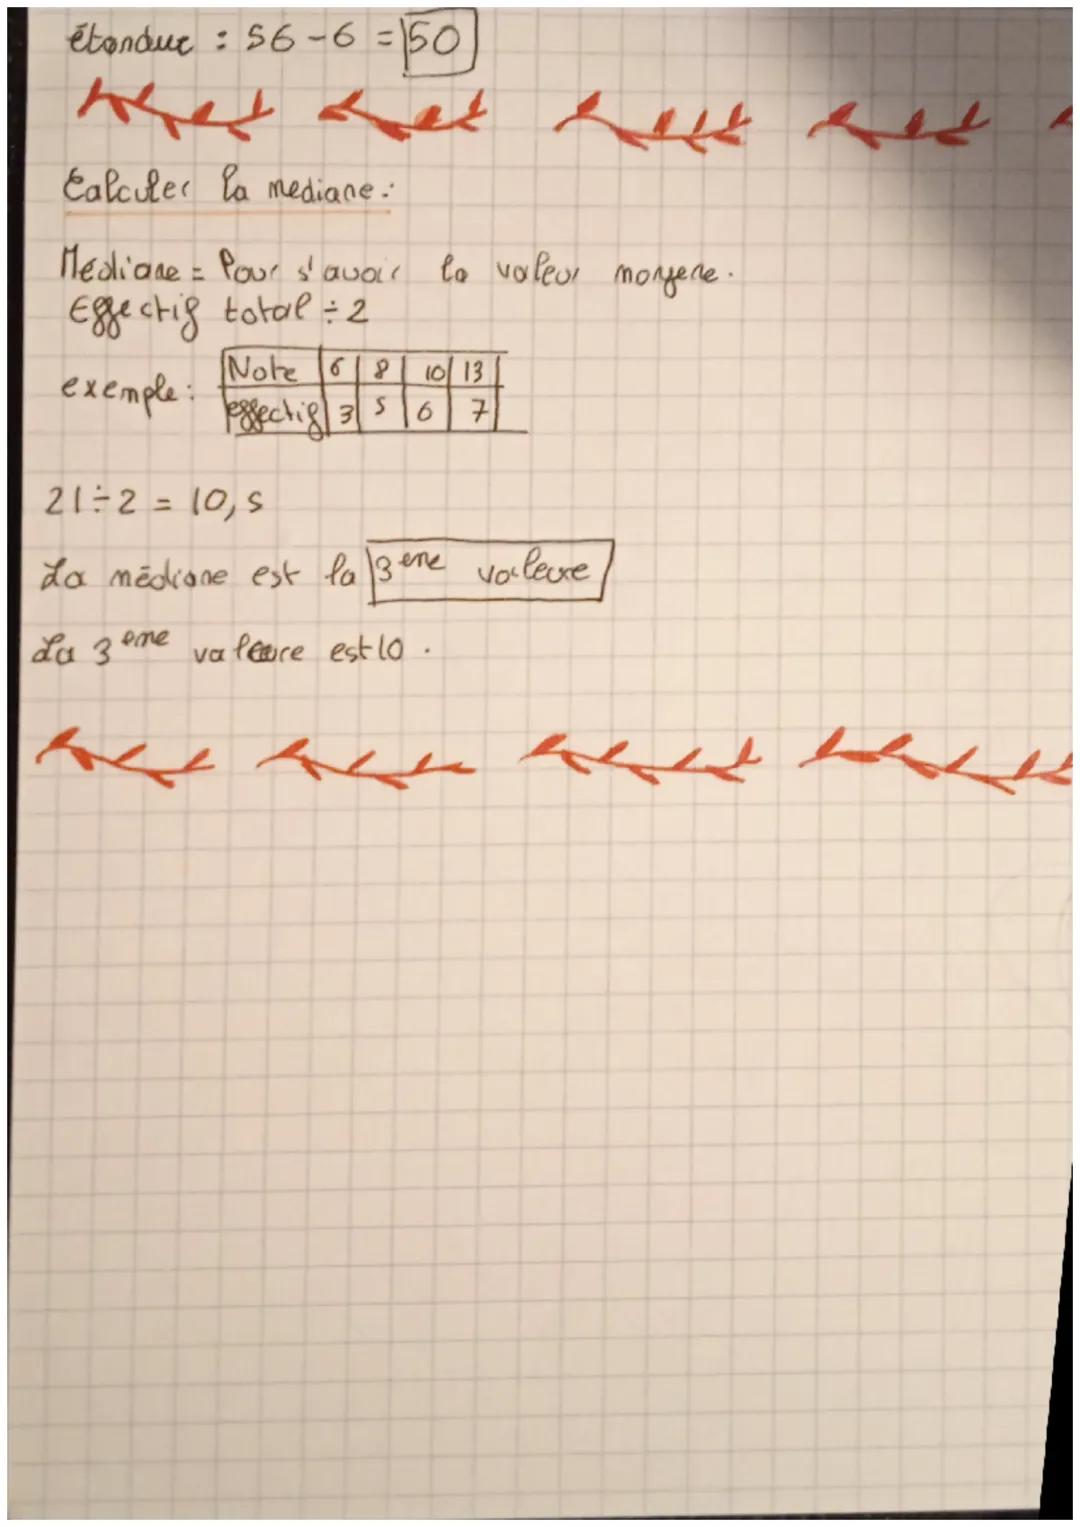 étendue : 56-6 = 50
Calculer la mediane :
Médiane = Pour s'avoir la valeur moyene.
Effectif total ÷ 2
exemple : Note 6 8 10 13
effectif 3 5 6 7
21÷2 = 10,5
La médiane est la 3eme valeure
La 3eme valeure est 10.